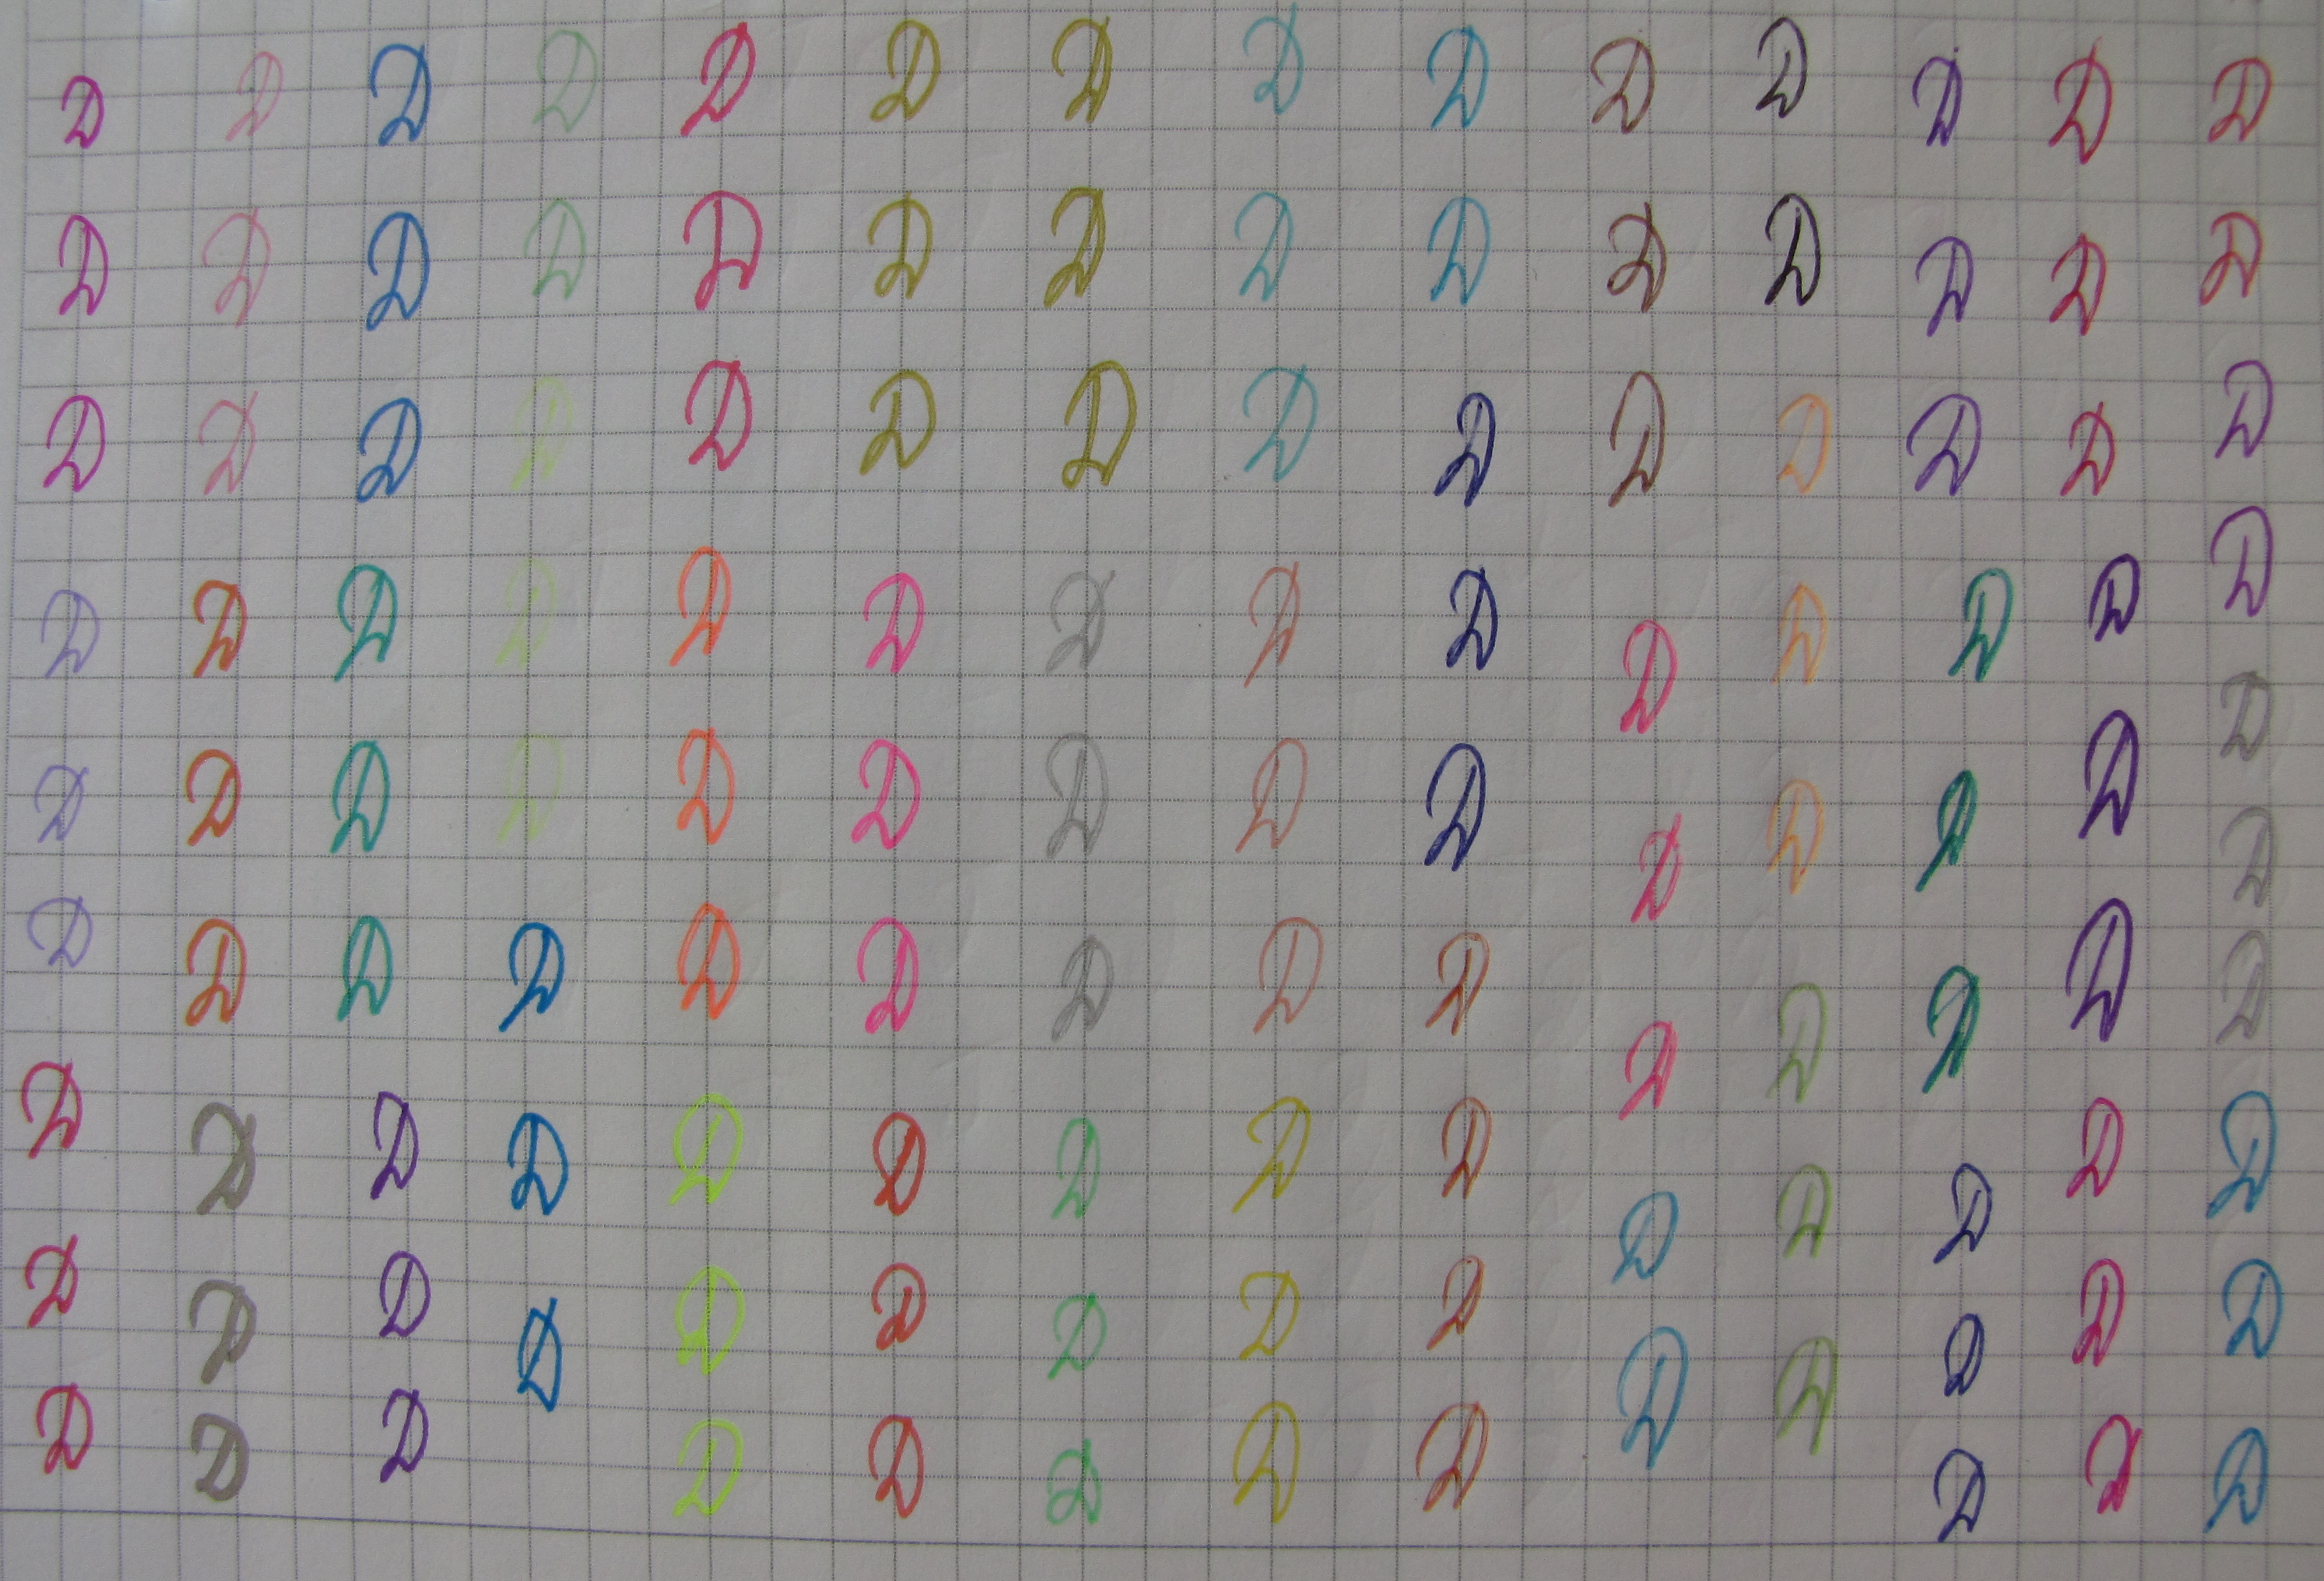 D D D D D D D D D D D D D D
D D D D D D D D D D D D D D
D D D D D D D D D D D D D D
D D D D D D D D D D D D D D
D D D D D D D D D D D D D D
D D D D D D D D D D D D D D
D D D D D D D D D D D D D D
D D D D D D D D D D D D D D
D D D D D D D D D D D
D